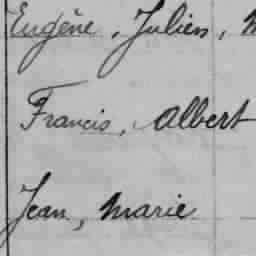 Eugène, Julien,
Francis, Albert
Jean, Marie